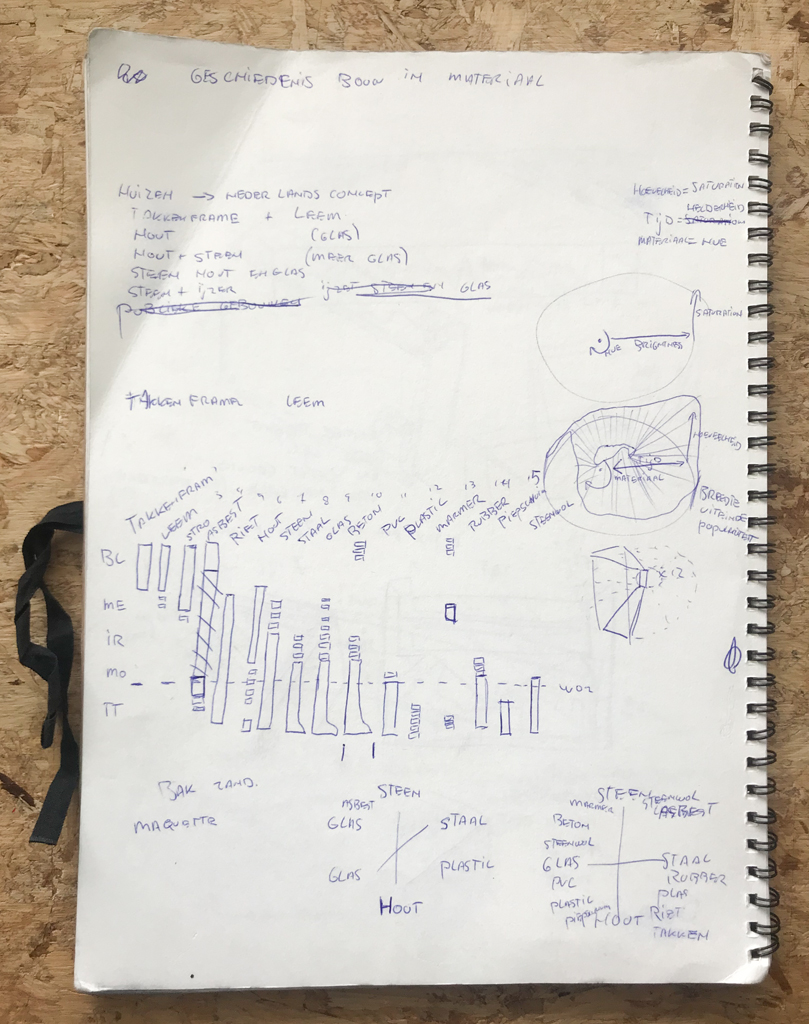 GESCHIEDENIS BOUW IN MATERIAAL
HUIZEN → NEDERLANDS CONCEPT
TAKKENFRAME + LEEM
HOUT (GLAS)
HOUT + STEEN (MEER GLAS)
STEEN HOUT EN GLAS
STEEN + IJZER IJZER STEEN EN GLAS
PUBLIEKE GEBOUWEN
HOEVEELHEID = SATURATION
HELDERHEID
TIJD = SATURATION
MATERIAAL = HUE
SATURATION
HUE BRIGHTNESS
TAKKENFRAME LEEM
HOEVEELHEID
TIJD
MATERIAAL
BREEDTE
UITEINDE
POPULARITEIT
TAKKENFRAM
LEEM
STRO
ASBEST
RIET
HOUT
STEEN
STAAL
GLAS
BETON
PVC
PLASTIC
MARMER
RUBBER
PIEPSCHUIM
STEENWOL
3 4 5 6 7 8 9 10 11 12 13 14 15
BC
ME
IR
MO
TT
WO2
BAK ZAND.
MAQUETTE
STEEN
ASBEST
GLAS STAAL
GLAS PLASTIC
HOUT
STEEN
MARMER STEENWOL
ASBEST
BETON
STEENWOL
GLAS STAAL
PVC RUBBER
PLASTIC PLAS
PIEPSCHUIM HOUT RIET
TAKKEN